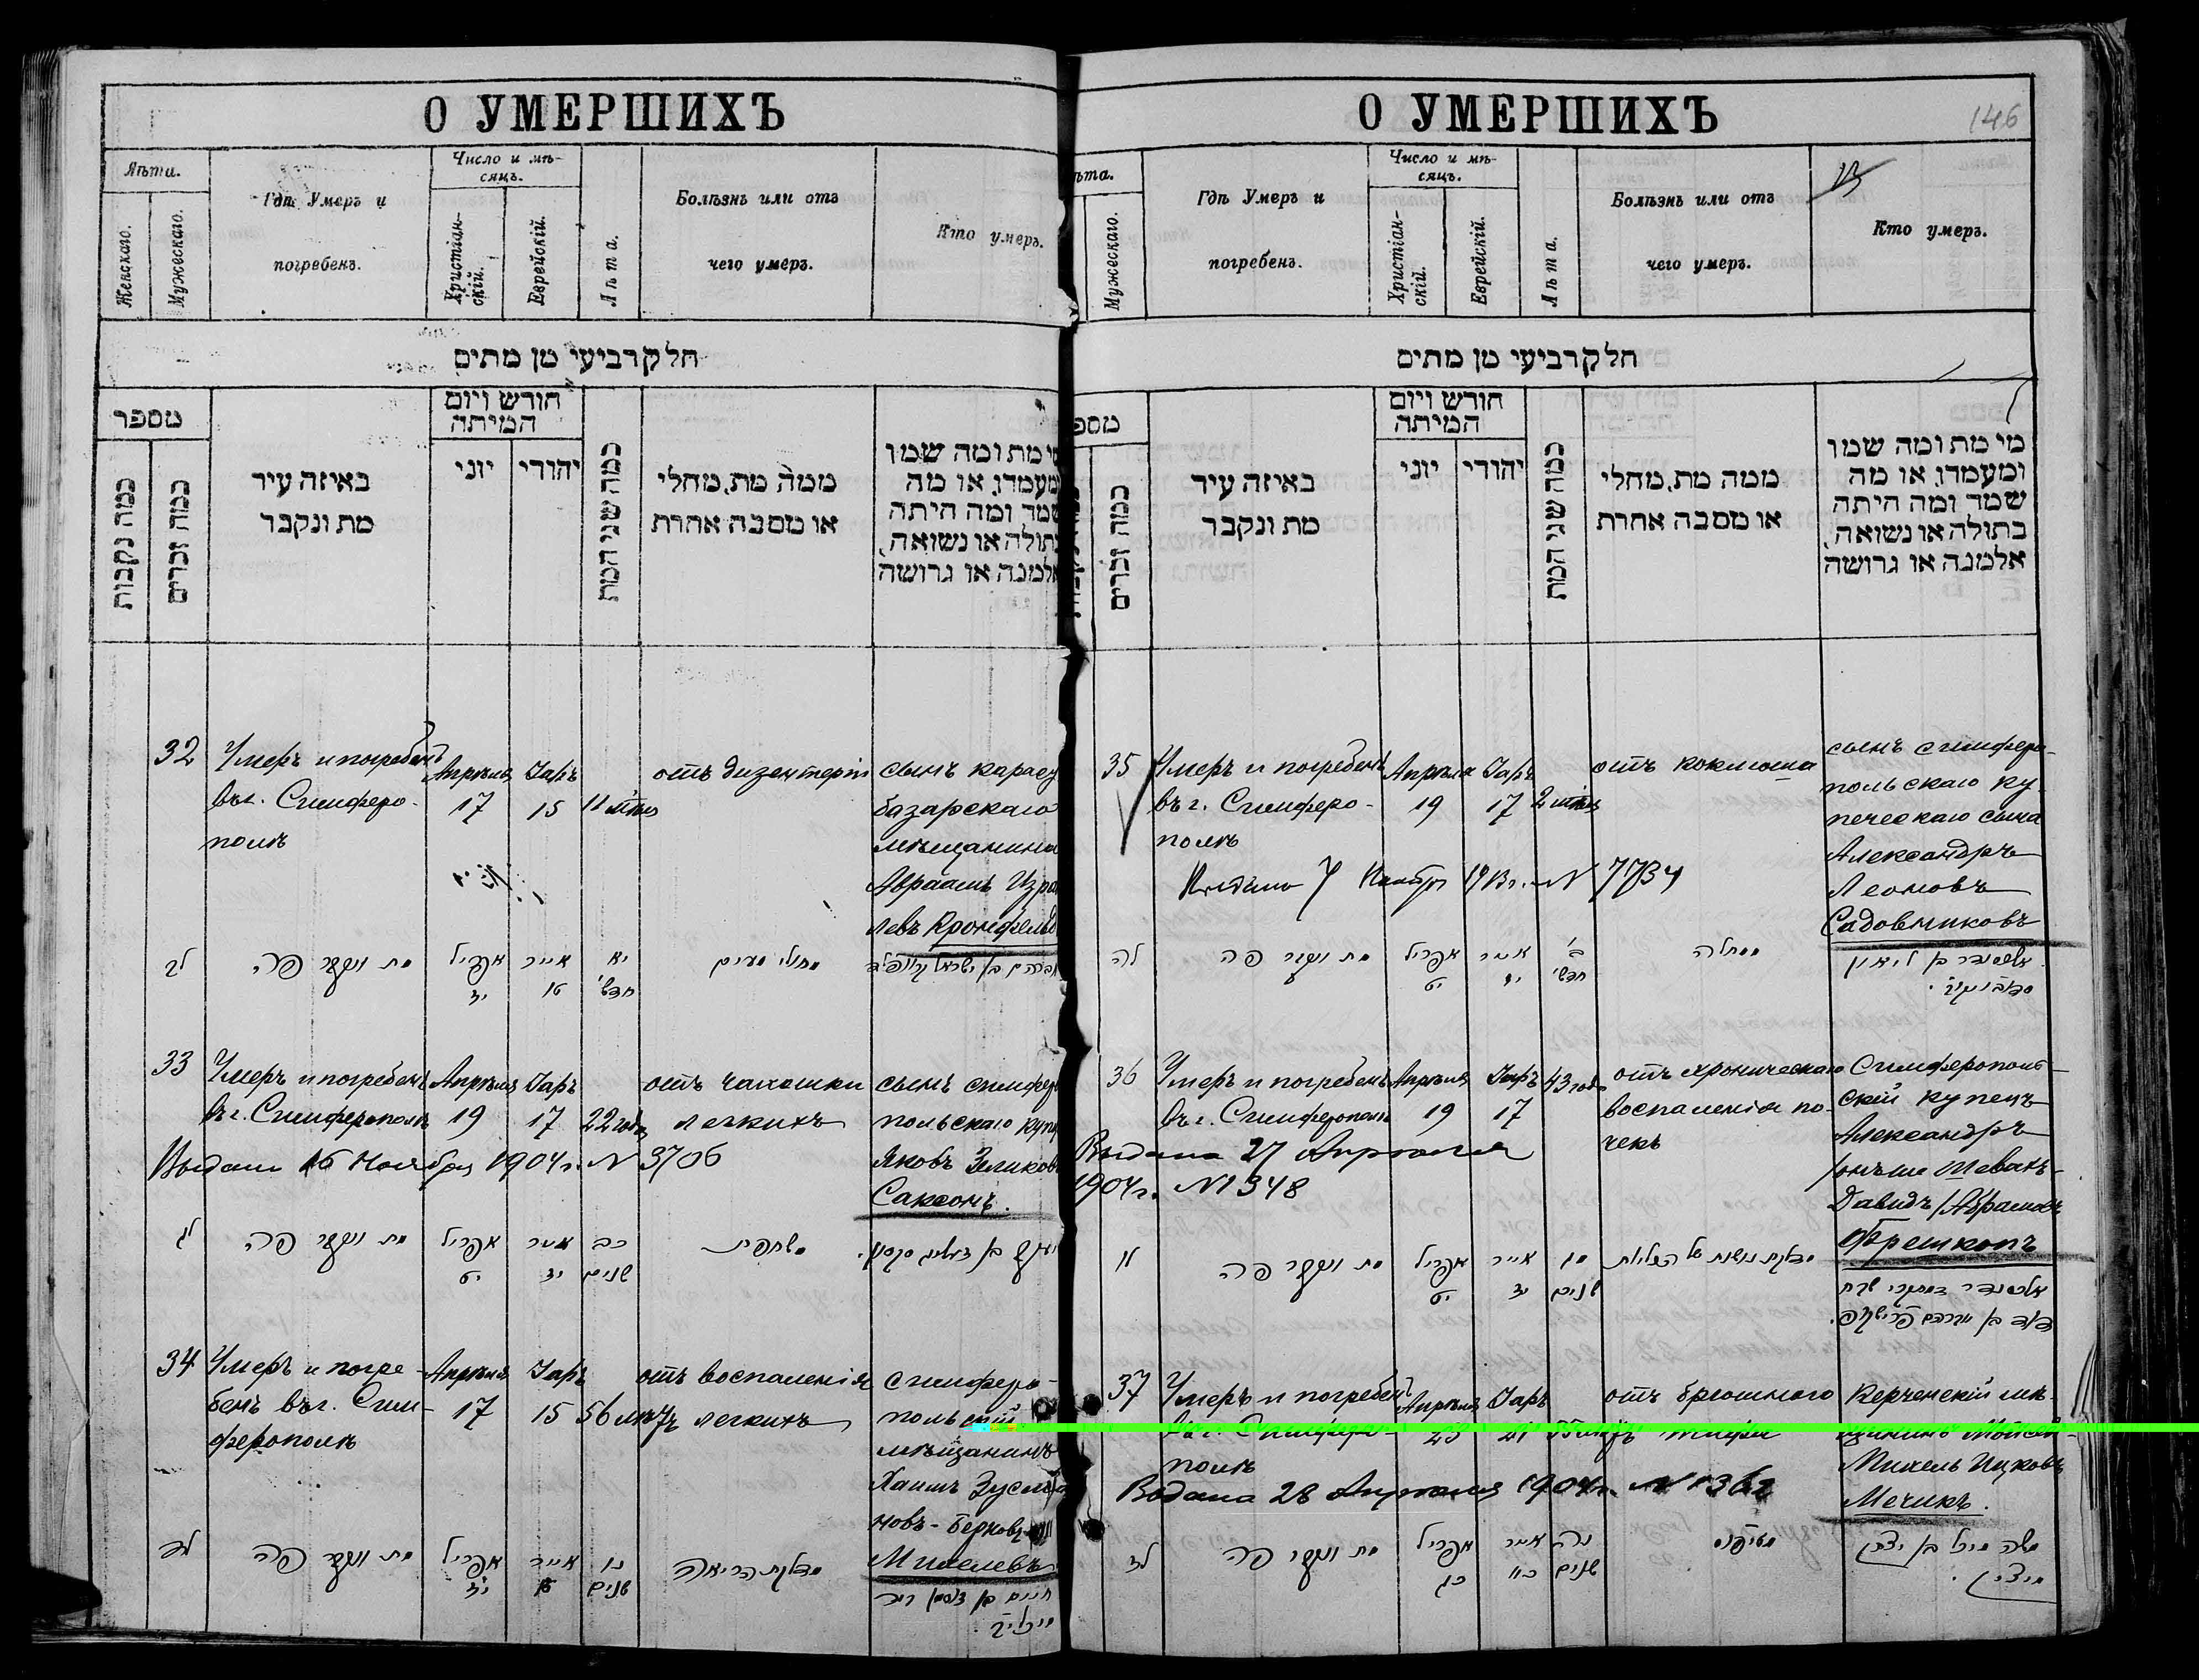 О УМЕРШИХЪ
Лѣта.
Женскаго.
Мужескаго.
Гдѣ Умеръ и
погребенъ.
Число и мѣ-
сяцъ.
Христіан-
скій.
Еврейскій.
Лѣта.
Болѣзнь или отъ
чего умеръ.
Кто умеръ.
חלק רביעי מן מתים
מספר
כמה נקבות
כמה זכרים
באיזה עיר
מת ונקבר
חודש ויום
המיתה
יוני
יהודי
כמה שני המת
ממה מת, מחלי
או מסבה אחרת
מי מת ומה שמו
ומעמדו, או מה
שמה ומה היתה
בתולה או נשואה,
אלמנה או גרושה
32
Умеръ и погребенъ
въ г. Симферо-
полѣ
Апрѣля
17
Іаръ
15
11 мѣс
отъ дизентеріи
сынъ карасу
базарскаго
мѣщанина
Авраамъ Изра
левъ Кронфельд
לב
מת ונקבר פה
אפריל
יז
אייר
טו
יא
חדשי
מחולי מעים
אברהם בן ישראל קרונפלד
33
Умеръ и погребенъ
въ г. Симферополѣ
Апрѣля
19
Іаръ
17
22 года
отъ чахотки
легкихъ
сынъ симферо
польскаго купц
Яковъ Зеликов
Саксонъ.
Выдана 16 Ноября 1904 г. N 3706
לג
מת ונקבר פה
אפריל
יט
אייר
יז
כב
שנים
משחפת
יעקב בן זעליג סקסון.
34
Умеръ и погре-
бенъ въ г. Сим-
ферополѣ
Апрѣля
17
Іаръ
15
56 лѣтъ
отъ воспаленія
легкихъ
симферо-
польскій
мѣщанинъ
Хаимъ Зусма
новъ-Берков
Михелевъ
לד
מת ונקבר פה
אפריל
יז
אייר
טו
נו
שנים
מדלקת הריאה
О УМЕРШИХЪ
146
ѣта.
Мужескаго.
Гдѣ Умеръ и
погребенъ.
Число и мѣ-
сяцъ.
Христіан-
скій.
Еврейскій.
Лѣта.
Болѣзнь или отъ
чего умеръ.
Кто умеръ.
חלק רביעי מן מתים
מספ
כמה זכרים
באיזה עיר
מת ונקבר
חודש ויום
המיתה
יוני
יהודי
כמה שני המת
ממה מת, מחלי
או מסבה אחרת
מי מת ומה שמו
ומעמדו, או מה
שמה ומה היתה
בתולה או נשואה,
אלמנה או גרושה
35
Умеръ и погребенъ
въ г. Симферо-
полѣ
Апрѣля
19
Іаръ
17
2 мѣс
отъ коклюша
сынъ симферо-
польскаго ку
печескаго сына
Александръ
Леоновъ
Садовниковъ
7 Ноября 1913 г. N 7734
לה
מת ונקבר פה
אפריל
יט
אייר
יז
ב'
חדשי
אלכסנדר בן ליאון
סדובניקוב.
36
Умеръ и погребенъ
въ г. Симферополѣ
Апрѣля
19
Іаръ
17
43 года
отъ хроническаго
воспаленія по-
чекъ
Симферополь-
скій купецъ
Александръ
Шевахъ-
Давидъ Абрамовъ
Фрешкопъ
Выдана 27 Апрѣля
1904 г. N 1348
לו
מת ונקבר פה
אפריל
יט
אייר
יז
מג
שנים
מדלקת נושנת של הכליות
אלכסנדר המקרי שבח
דוד בן אברהם פרישקופ.
37
Умеръ и погребенъ
въ г. Симферо-
полѣ
Апрѣля
23
Іаръ
21
55 лѣтъ
отъ брюшного
тифа
Керченскій мѣ-
щанинъ Мойсей-
Михель Ицковъ
Мечикъ.
Выдана 28 Апрѣля 1904 г. N 1362
לז
מת ונקבר פה
אפריל
כג
אייר
כא
נה
שנים
מטיפוס
משה מיכל בן יצחק
מיציק.